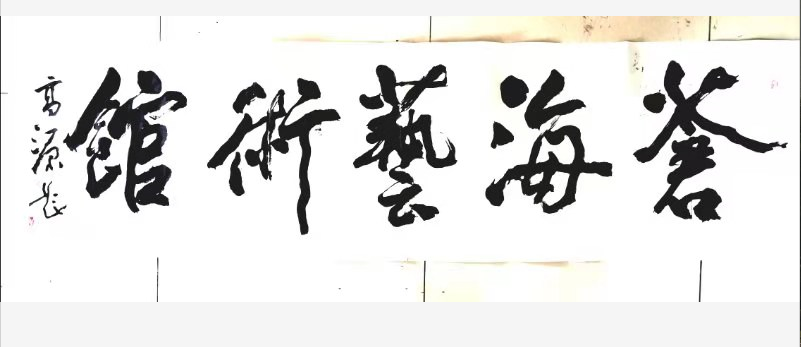 蒼海藝術館
高源題